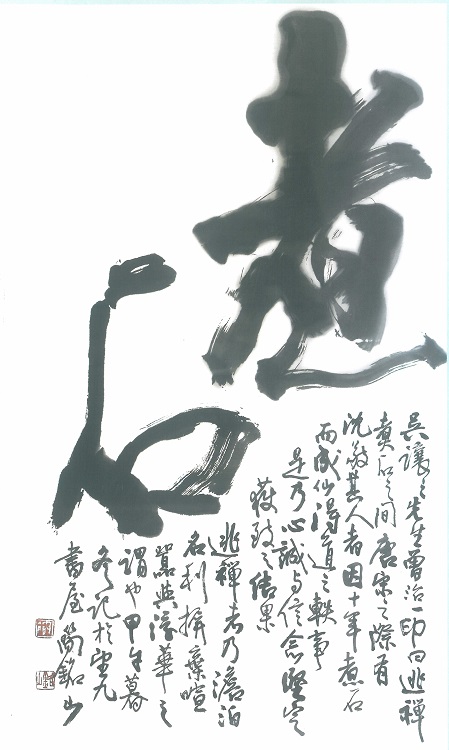 煮石
吳讓之先生曾治一印曰逃禪
煮石之间唐宋之際有
沈敬其人者因十年煮石
而成仙得道之軼事
是乃心誠与信念堅定
獲致之結果
逃禪者乃澹泊
名利摒棄喧
囂與浮華之
謂也甲午暮
冬记於望九
書屋簡銘山